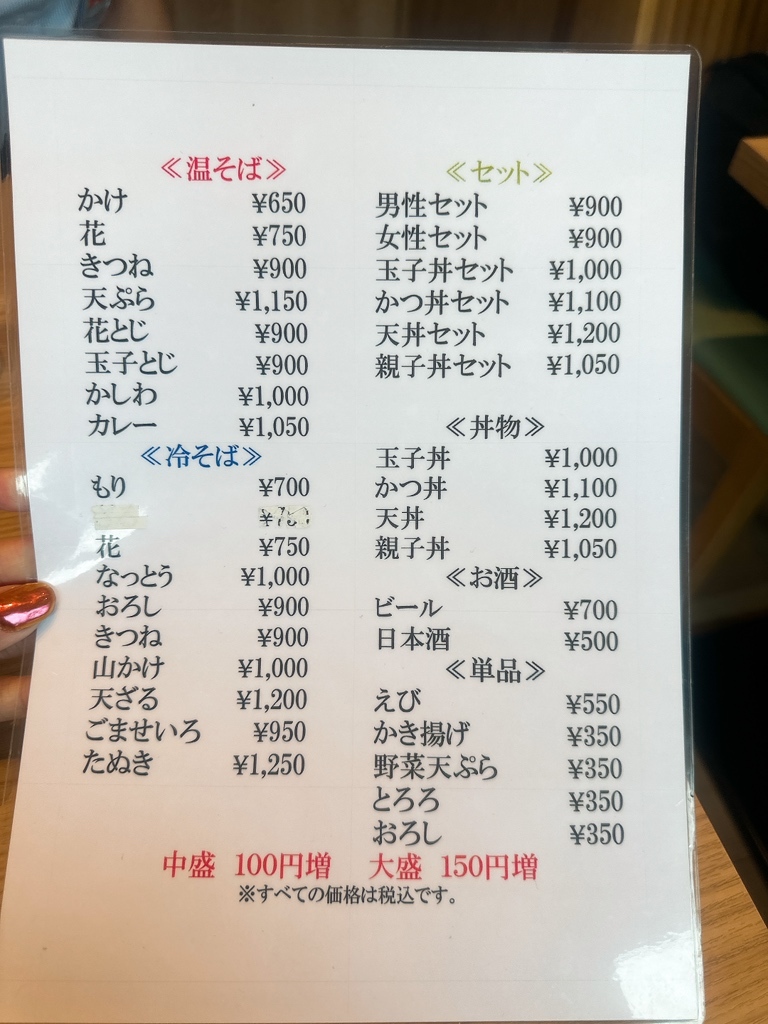 ≪温そば≫
かけ ¥650
花 ¥750
きつね ¥900
天ぷら ¥1,150
花とじ ¥900
玉子とじ ¥900
かしわ ¥1,000
カレー ¥1,050
≪冷そば≫
もり ¥700
花 ¥750
なっとう ¥1,000
おろし ¥900
きつね ¥900
山かけ ¥1,000
天ざる ¥1,200
ごませいろ ¥950
たぬき ¥1,250
≪セット≫
男性セット ¥900
女性セット ¥900
玉子丼セット ¥1,000
かつ丼セット ¥1,100
天丼セット ¥1,200
親子丼セット ¥1,050
≪丼物≫
玉子丼 ¥1,000
かつ丼 ¥1,100
天丼 ¥1,200
親子丼 ¥1,050
≪お酒≫
ビール ¥700
日本酒 ¥500
≪単品≫
えび ¥550
かき揚げ ¥350
野菜天ぷら ¥350
とろろ ¥350
おろし ¥350
中盛 100円増 大盛 150円増
※すべての価格は税込です。